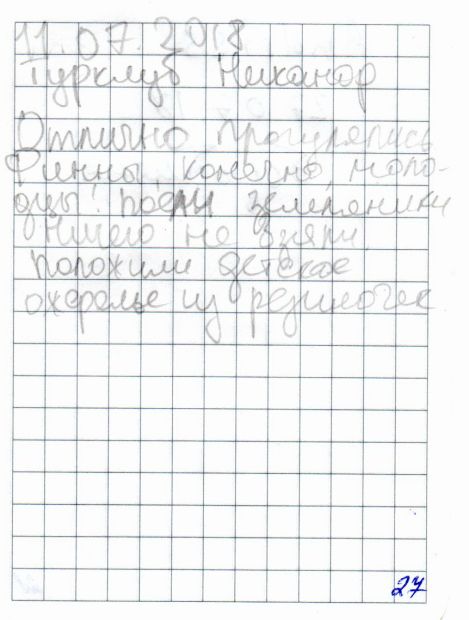 11.07.2018
Турклуб Никанор
Отлично прогулялись
Финны, конечно, моло-
дцы! Поели земляники
Ничего не взяли,
положили детское
ожерелье из резиночек
27